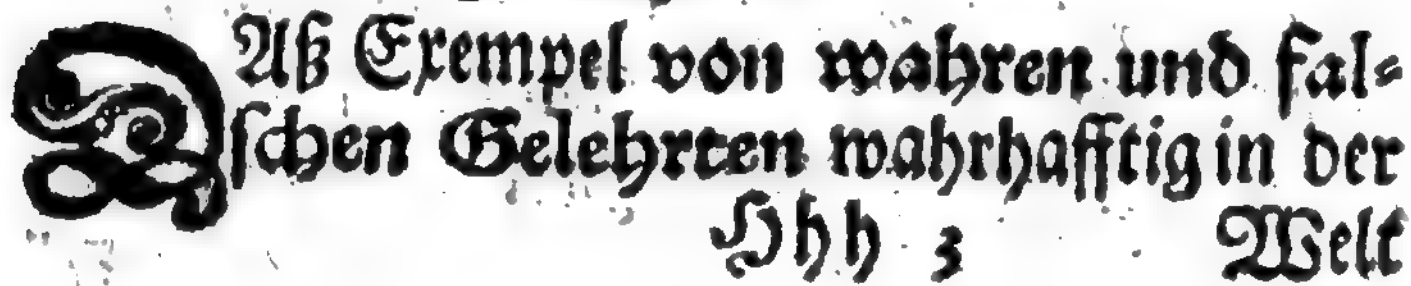 DAß Exempel von wahren und fal-
schen Gelehrten wahrhafftig in der
Hhh 3 Welt